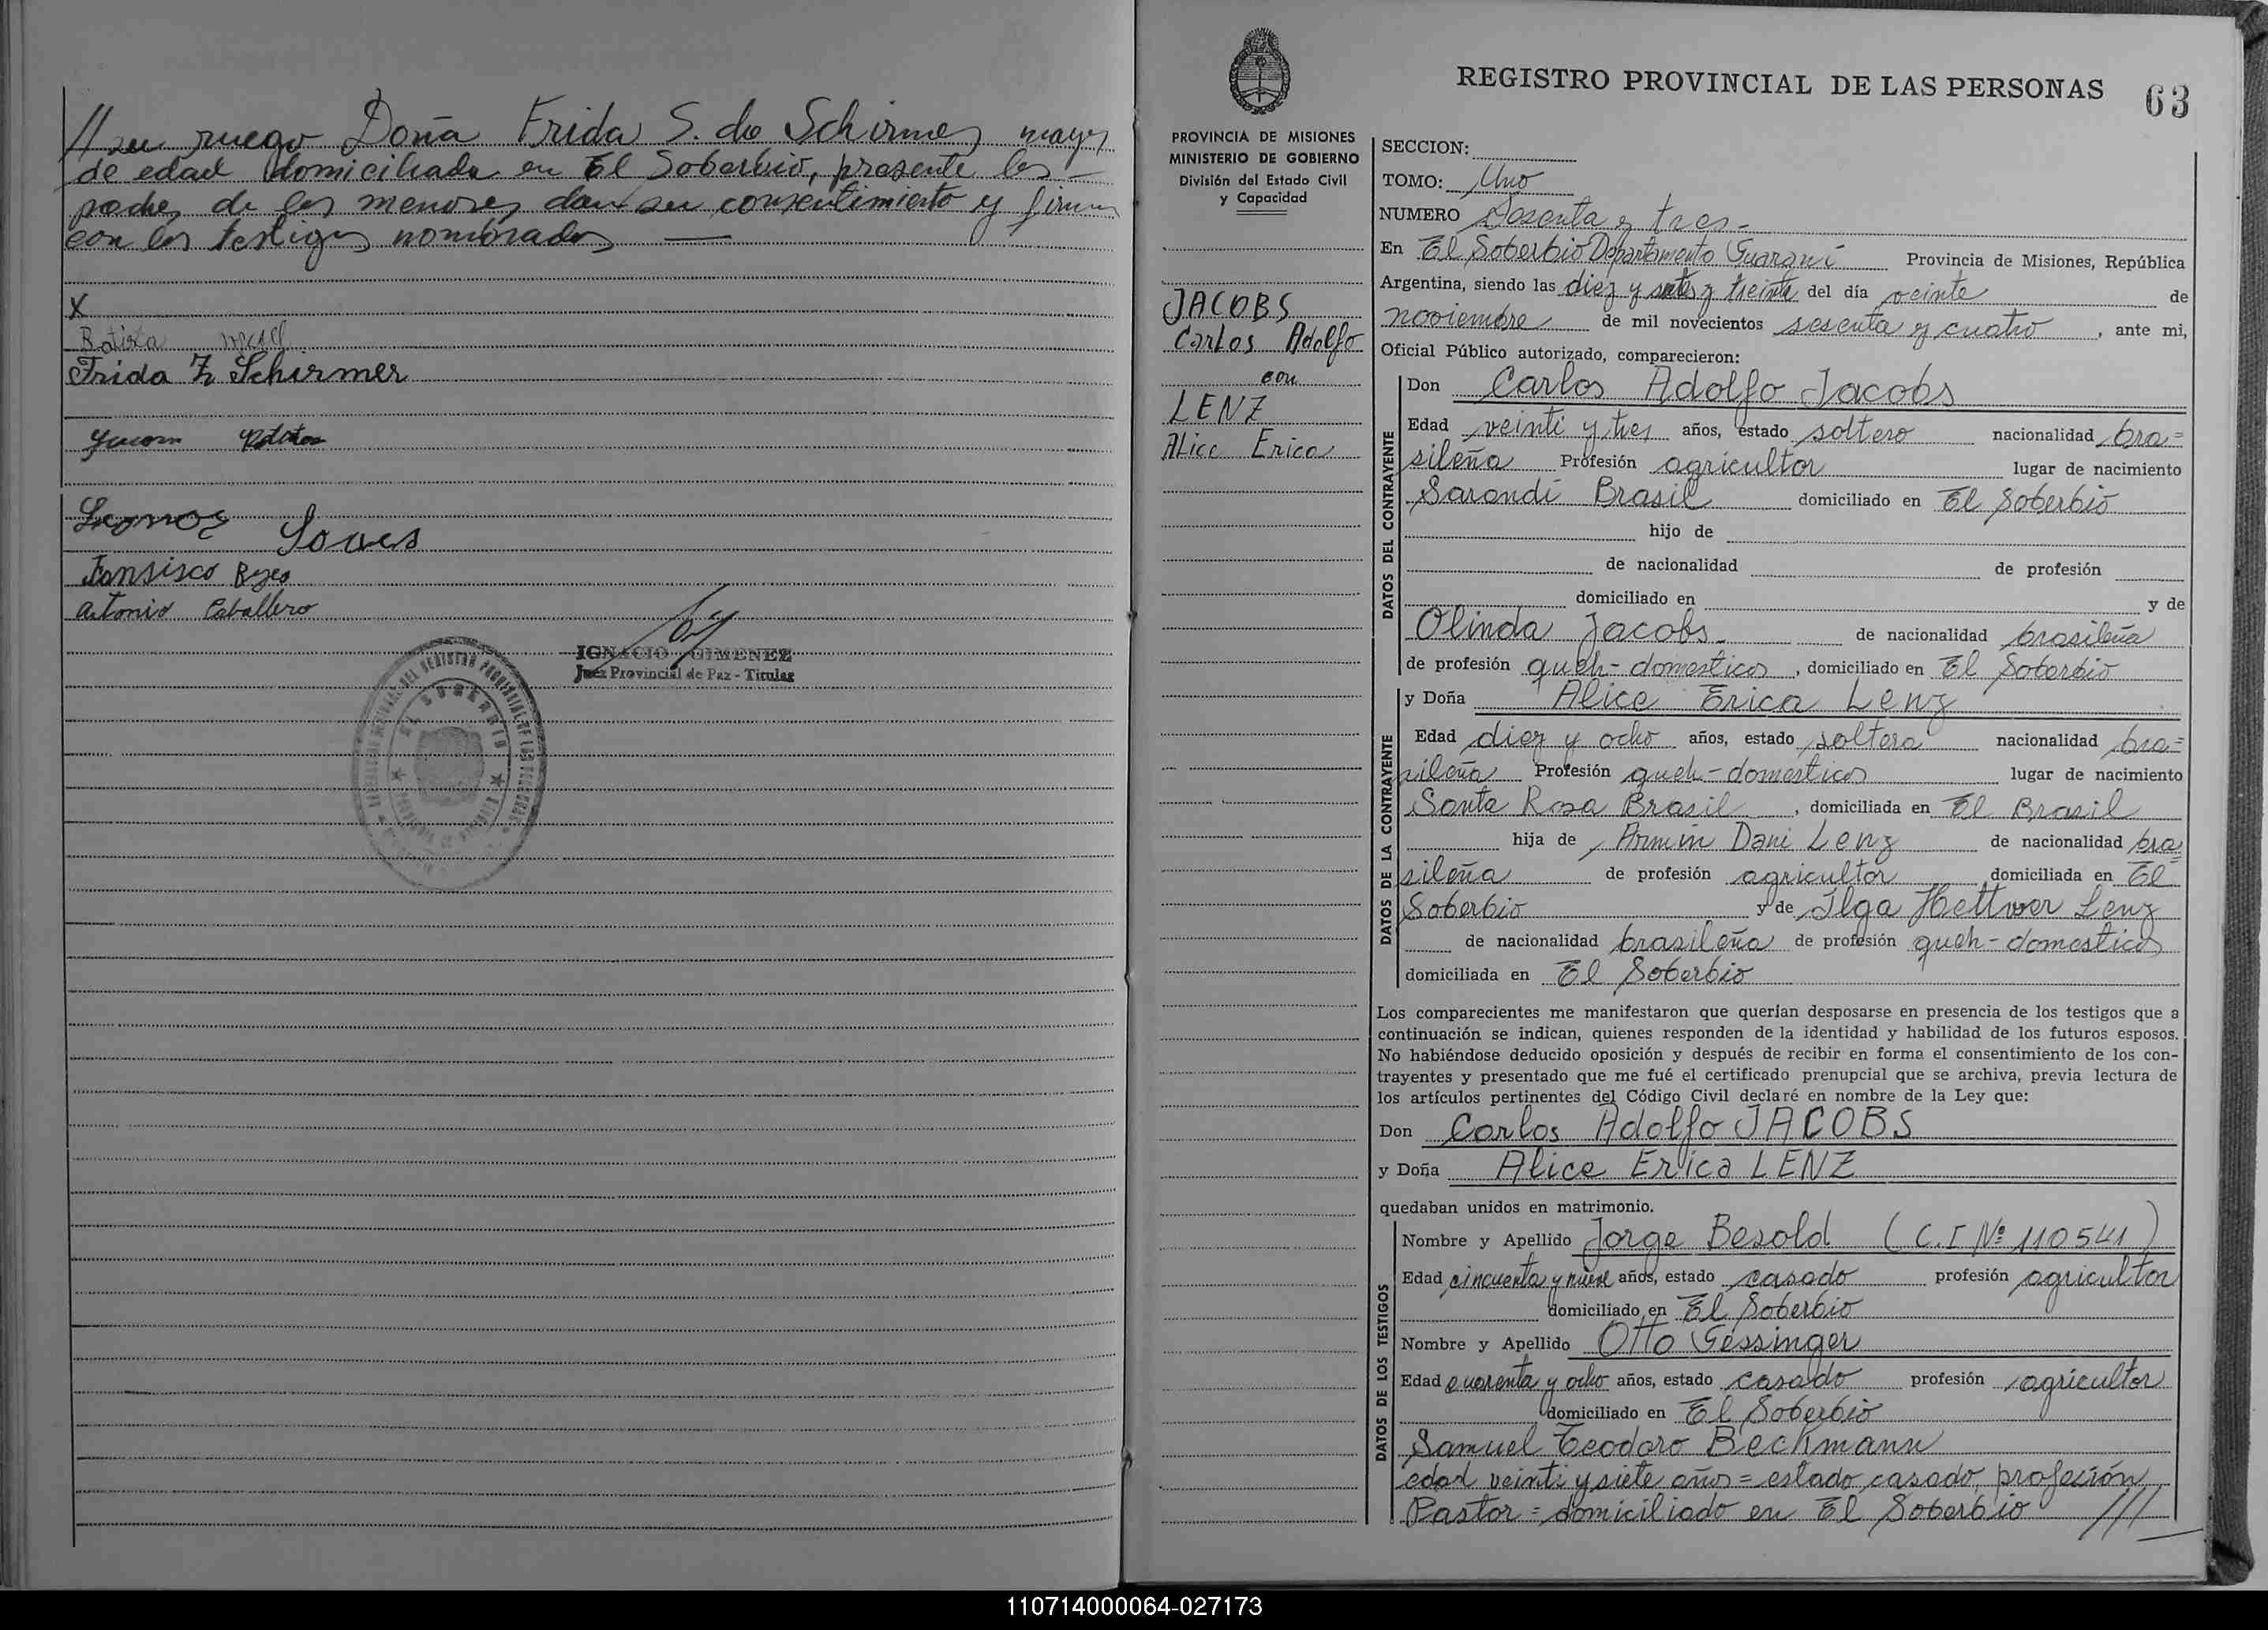 // su ruego Doña Frida S. de Schirmer mayor
de edad domiciliada en El Soberbio, presente los -
padres de los menores dan su consentimiento y firman
con los testigos nombrados —
X
Batista
Frida Z Schirmer
Soares
Fansisco Reyes
Antonio Caballero
IGNACIO GIMENEZ
Juez Provincial de Paz - Titular
EL SOBERBIO
REGISTRO PROVINCIAL DE LAS PERSONAS
63
PROVINCIA DE MISIONES
MINISTERIO DE GOBIERNO
División del Estado Civil
y Capacidad
JACOBS
Carlos Adolfo
con
LENZ
Alice Erica
SECCION:
TOMO: Uno
NUMERO Sesenta y tres -
En El Soberbio Departamento Guaraní Provincia de Misiones, República
Argentina, siendo las diez y siete y treinta del día veinte de
noviembre de mil novecientos sesenta y cuatro, ante mi,
Oficial Público autorizado, comparecieron:
DATOS DEL CONTRAYENTE
Don Carlos Adolfo Jacobs
Edad veinti y tres años, estado soltero nacionalidad bra=
sileña Profesión agricultor lugar de nacimiento
Sarandí Brasil domiciliado en El Soberbio
hijo de
de nacionalidad de profesión
domiciliado en y de
Olinda Jacobs - de nacionalidad brasileña
de profesión queh-domesticos, domiciliado en El Soberbio
DATOS DE LA CONTRAYENTE
y Doña Alice Erica Lenz
Edad diez y ocho años, estado soltera nacionalidad bra=
sileña Profesión queh-domesticos lugar de nacimiento
Santa Rosa Brasil, domiciliada en El Brasil
hija de Armin Dani Lenz de nacionalidad bra=
sileña de profesión agricultor domiciliada en El
Soberbio y de Ilga Hettwer Lenz
de nacionalidad brasileña de profesión queh-domesticos
domiciliada en El Soberbio
Los comparecientes me manifestaron que querían desposarse en presencia de los testigos que a
continuación se indican, quienes responden de la identidad y habilidad de los futuros esposos.
No habiéndose deducido oposición y después de recibir en forma el consentimiento de los con-
trayentes y presentado que me fué el certificado prenupcial que se archiva, previa lectura de
los artículos pertinentes del Código Civil declaré en nombre de la Ley que:
Don Carlos Adolfo JACOBS
y Doña Alice Erica LENZ
quedaban unidos en matrimonio.
DATOS DE LOS TESTIGOS
Nombre y Apellido Jorge Besold (C.I Nº 110541)
Edad cincuenta y nueve años, estado casado profesión agricultor
domiciliado en El Soberbio
Nombre y Apellido Otto Gessinger
Edad cuarenta y ocho años, estado casado profesión agricultor
domiciliado en El Soberbio
Samuel Teodoro Beckmann
edad veinti y siete años = estado casado, profesión
Pastor = domiciliado en El Soberbio ///
110714000064-027173